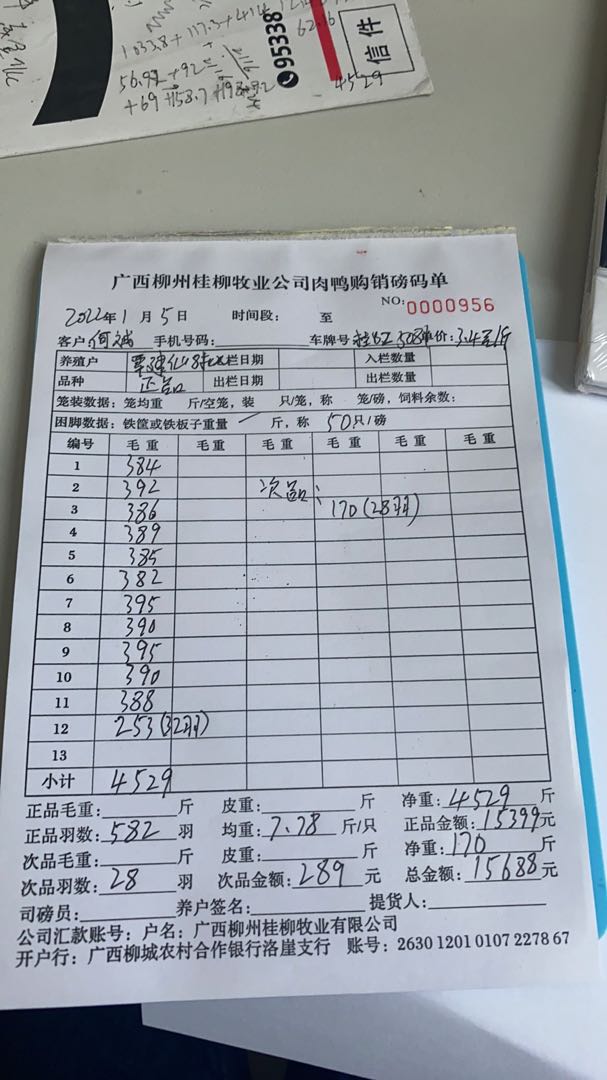 1033.8+117.3+414
56.92+92=
+69+158.7+198+92
95338
信件
4529
广西柳州桂柳牧业公司肉鸭购销磅码单
NO:0000956
2022年1月5日 时间段: 至
客户: 手机号码: 车牌号: 单价:3.4
养殖户 入栏日期 入栏数量
品种 正品 出栏日期 出栏数量
笼装数据:笼均重 斤/空笼,装 只/笼,称 笼/磅,饲料余数:
困脚数据:铁筐或铁板子重量 斤,称 50只/磅
编号 毛重 毛重 毛重 毛重 毛重 毛重
1 384
2 392 次品:
3 386 170(28羽)
4 389
5 385
6 382
7 395
8 390
9 395
10 390
11 388
12 253(32羽)
13
小计 4529
正品毛重: 斤 皮重: 斤 净重:4529斤
正品羽数:582羽 均重:7.78斤/只 正品金额:15399元
次品毛重: 斤 皮重: 斤 净重:170斤
次品羽数:28羽 次品金额:289元 总金额:15688元
司磅员: 养户签名: 提货人:
公司汇款账号:户名:广西柳州桂柳牧业有限公司
开户行:广西柳城农村合作银行洛崖支行 账号:2630 1201 0107 2278 67